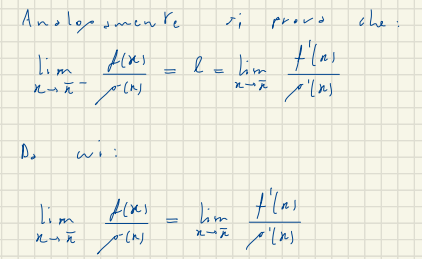 Analogamente si prova che:
lim x→x̄⁻ f(x)/g(x) = l = lim x→x̄ f'(x)/g'(x)
Da cui:
lim x→x̄ f(x)/g(x) = lim x→x̄ f'(x)/g'(x)